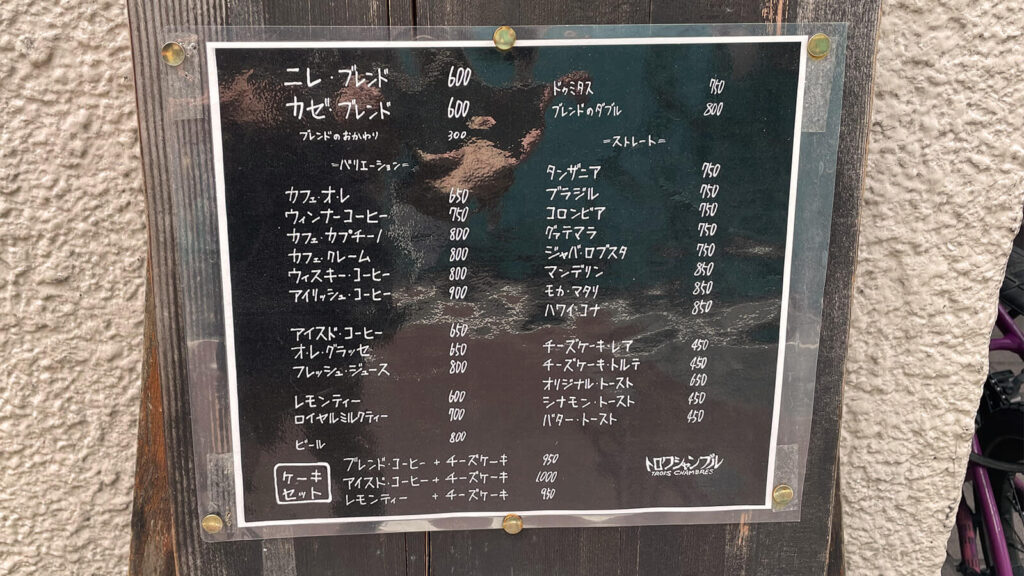 ニレ・ブレンド 600
カゼ・ブレンド 600
ブレンドのおかわり 300
=バリエーション=
カフェ・オ・レ 650
ウィンナーコーヒー 750
カフェ・カプチーノ 800
カフェ・クレーム 800
ウィスキー・コーヒー 800
アイリッシュ・コーヒー 900
アイスド・コーヒー 650
オ・レ・グラッセ 650
フレッシュ・ジュース 800
レモンティー 600
ロイヤルミルクティー 700
ビール 800
ドゥミタス 750
ブレンドのダブル 800
=ストレート=
タンザニア 750
ブラジル 750
コロンビア 750
グァテマラ 750
ジャバ・ロブスタ 750
マンデリン 850
モカ・マタリ 850
ハワイ・コナ 850
チーズケーキ・レア 450
チーズケーキ・トルテ 450
オリジナル・トースト 650
シナモン・トースト 450
バター・トースト 450
ケーキ
セット
ブレンド・コーヒー + チーズケーキ 950
アイスド・コーヒー + チーズケーキ 1000
レモンティー + チーズケーキ 950
トロワシャンブル
TROIS CHAMBRES